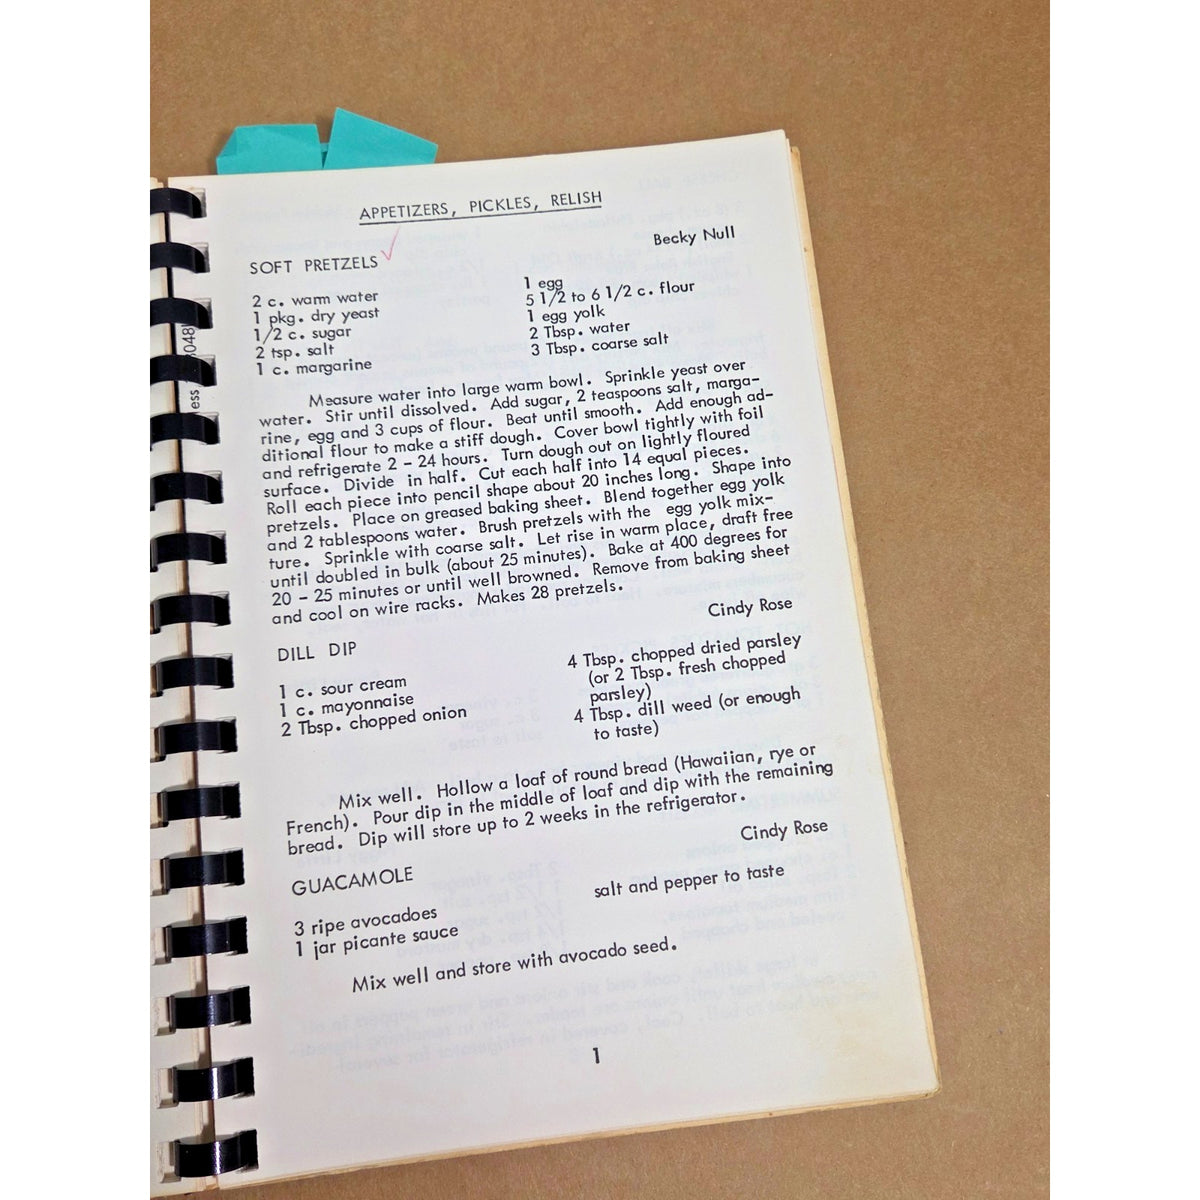 APPETIZERS, PICKLES, RELISH
Becky Null
SOFT PRETZELS
2 c. warm water
1 pkg. dry yeast
1/2 c. sugar
2 tsp. salt
1 c. margarine
1 egg
5 1/2 to 6 1/2 c. flour
1 egg yolk
2 Tbsp. water
3 Tbsp. coarse salt
Measure water into large warm bowl. Sprinkle yeast over
water. Stir until dissolved. Add sugar, 2 teaspoons salt, marga-
rine, egg and 3 cups of flour. Beat until smooth. Add enough ad-
ditional flour to make a stiff dough. Cover bowl tightly with foil
and refrigerate 2 - 24 hours. Turn dough out on lightly floured
surface. Divide in half. Cut each half into 14 equal pieces.
Roll each piece into pencil shape about 20 inches long. Shape into
pretzels. Place on greased baking sheet. Blend together egg yolk
and 2 tablespoons water. Brush pretzels with the egg yolk mix-
ture. Sprinkle with coarse salt. Let rise in warm place, draft free
until doubled in bulk (about 25 minutes). Bake at 400 degrees for
20 - 25 minutes or until well browned. Remove from baking sheet
and cool on wire racks. Makes 28 pretzels.
Cindy Rose
DILL DIP
1 c. sour cream
1 c. mayonnaise
2 Tbsp. chopped onion
4 Tbsp. chopped dried parsley
(or 2 Tbsp. fresh chopped
parsley)
4 Tbsp. dill weed (or enough
to taste)
Mix well. Hollow a loaf of round bread (Hawaiian, rye or
French). Pour dip in the middle of loaf and dip with the remaining
bread. Dip will store up to 2 weeks in the refrigerator.
Cindy Rose
GUACAMOLE
3 ripe avocadoes
1 jar picante sauce
salt and pepper to taste
Mix well and store with avocado seed.
1